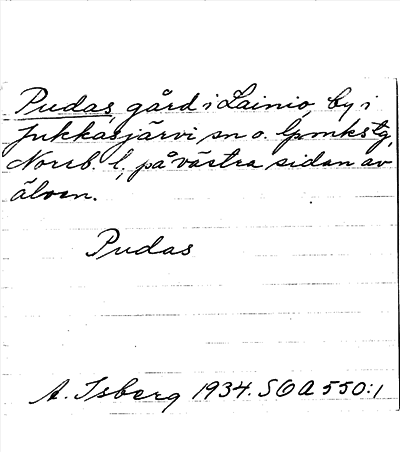 Pudas, gård i Lainio, by i
Jukkasjärvi sn o. lpmkstg,
Norrb. l., på västra sidan av
älven.
Pudas
A. Isberg 1934. SOA 550:1